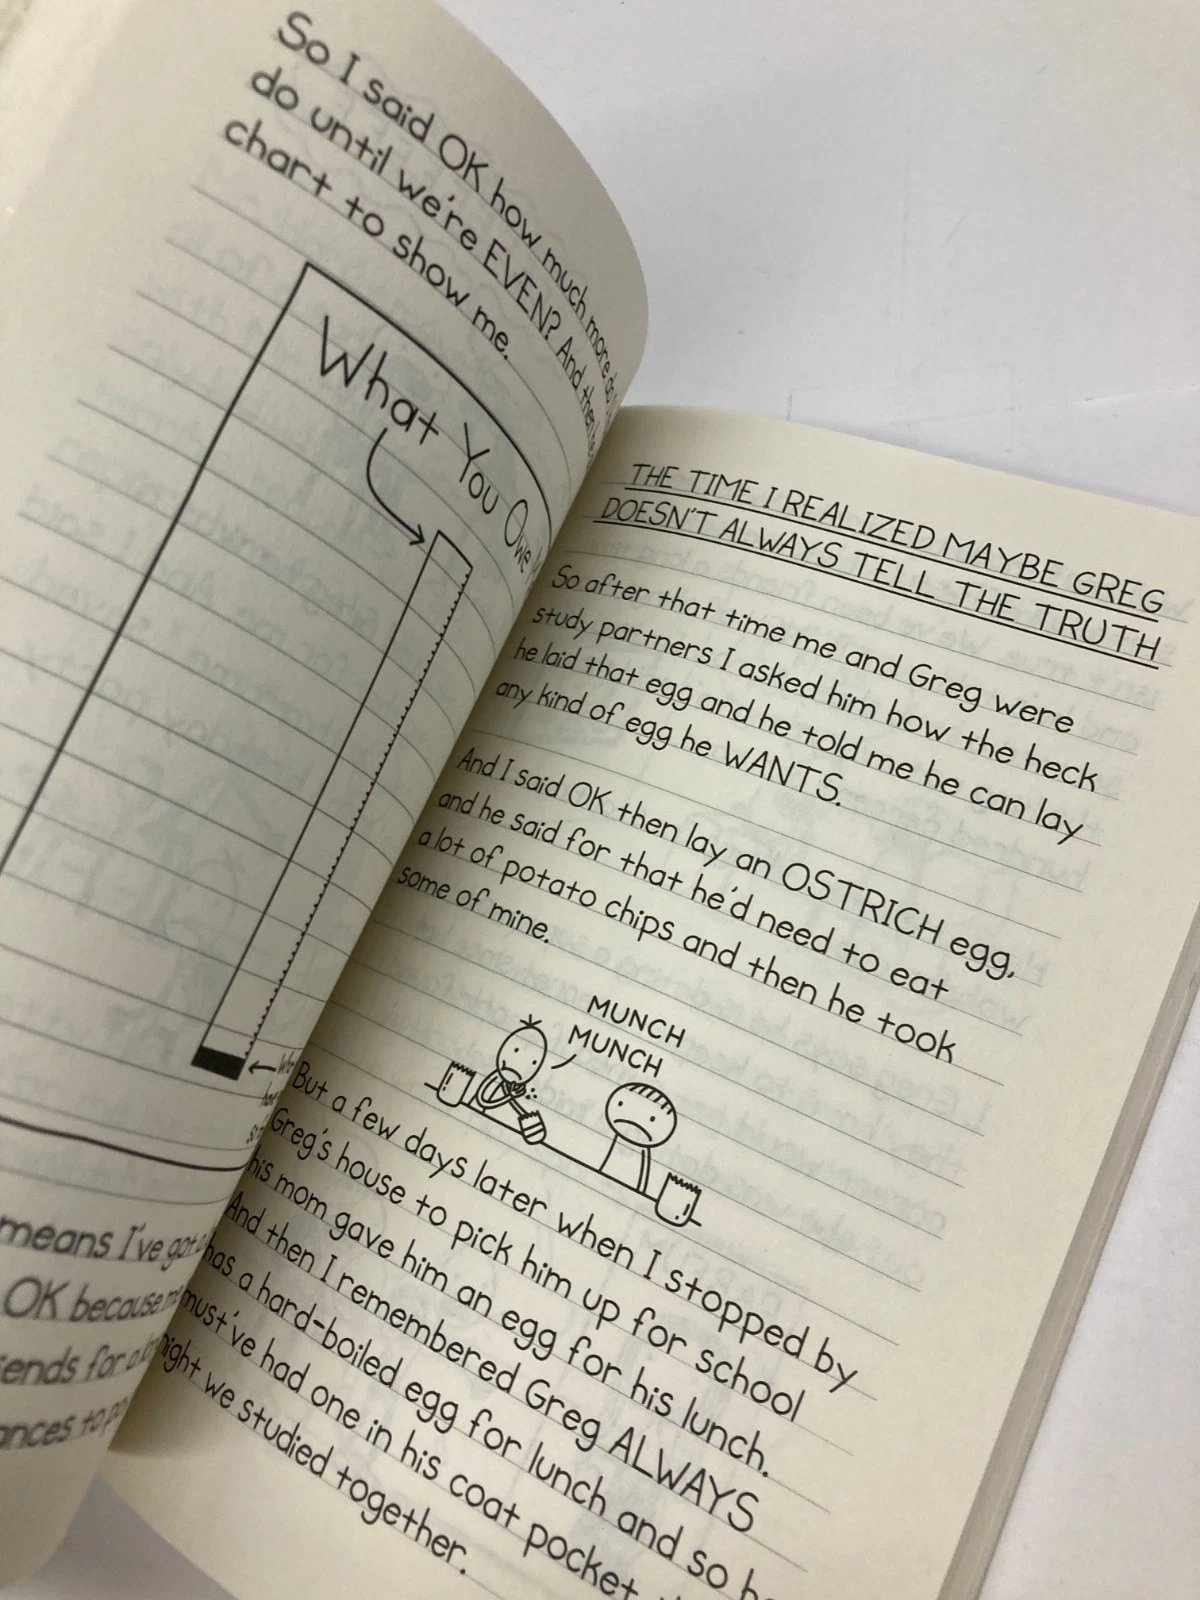 So I said OK how much more do I
do until we're EVEN? And then he
chart to show me.
What You Owe
means I've got a
OK because
for a
to
THE TIME I REALIZED MAYBE GREG
DOESN'T ALWAYS TELL THE TRUTH
So after that time me and Greg were
study partners I asked him how the heck
he laid that egg and he told me he can lay
any kind of egg he WANTS.
And I said OK then lay an OSTRICH egg,
and he said for that he'd need to eat
a lot of potato chips and then he took
some of mine.
MUNCH
MUNCH
But a few days later when I stopped by
Greg's house to pick him up for school
his mom gave him an egg for his lunch.
And then I remembered Greg ALWAYS
has a hard-boiled egg for lunch and so he
must've had one in his coat pocket
night we studied together.